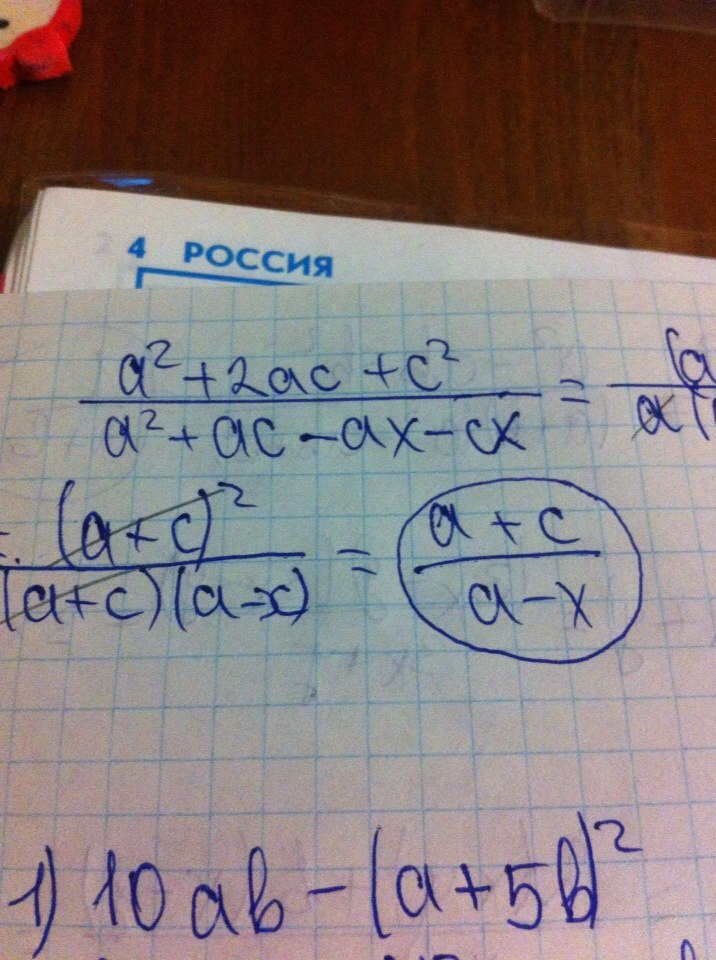 4 РОССИЯ
a²+2ac+c² / a²+ac-ax-cx = (a / a(
= (a+c)² / (a+c)(a-x) = a+c / a-x
1) 10ab-(a+5b)²